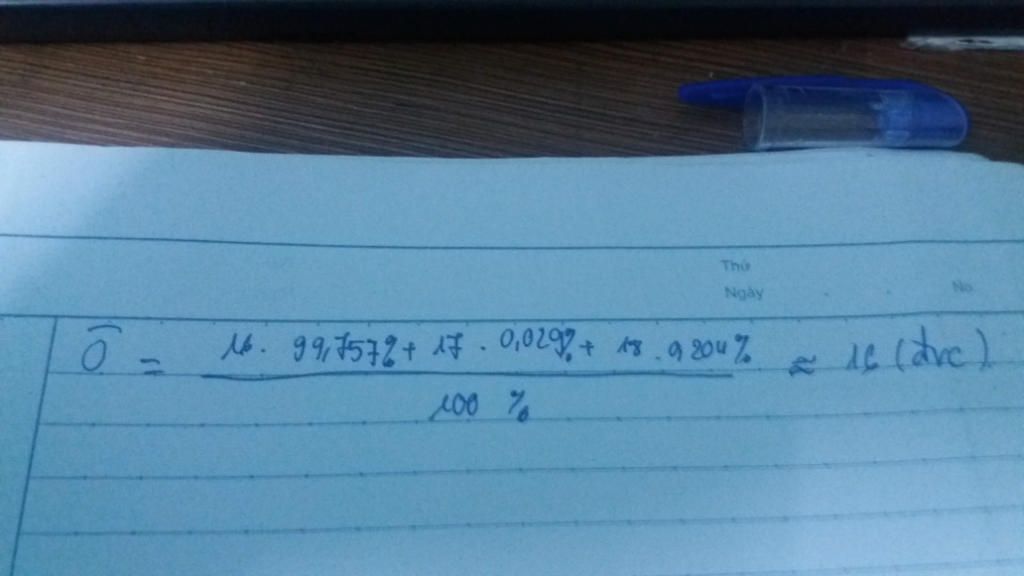 Thứ
Ngày No
O̅ = 16 . 99,757% + 17 . 0,039% + 18 . 0,204% / 100 % ≈ 16 (đvc)